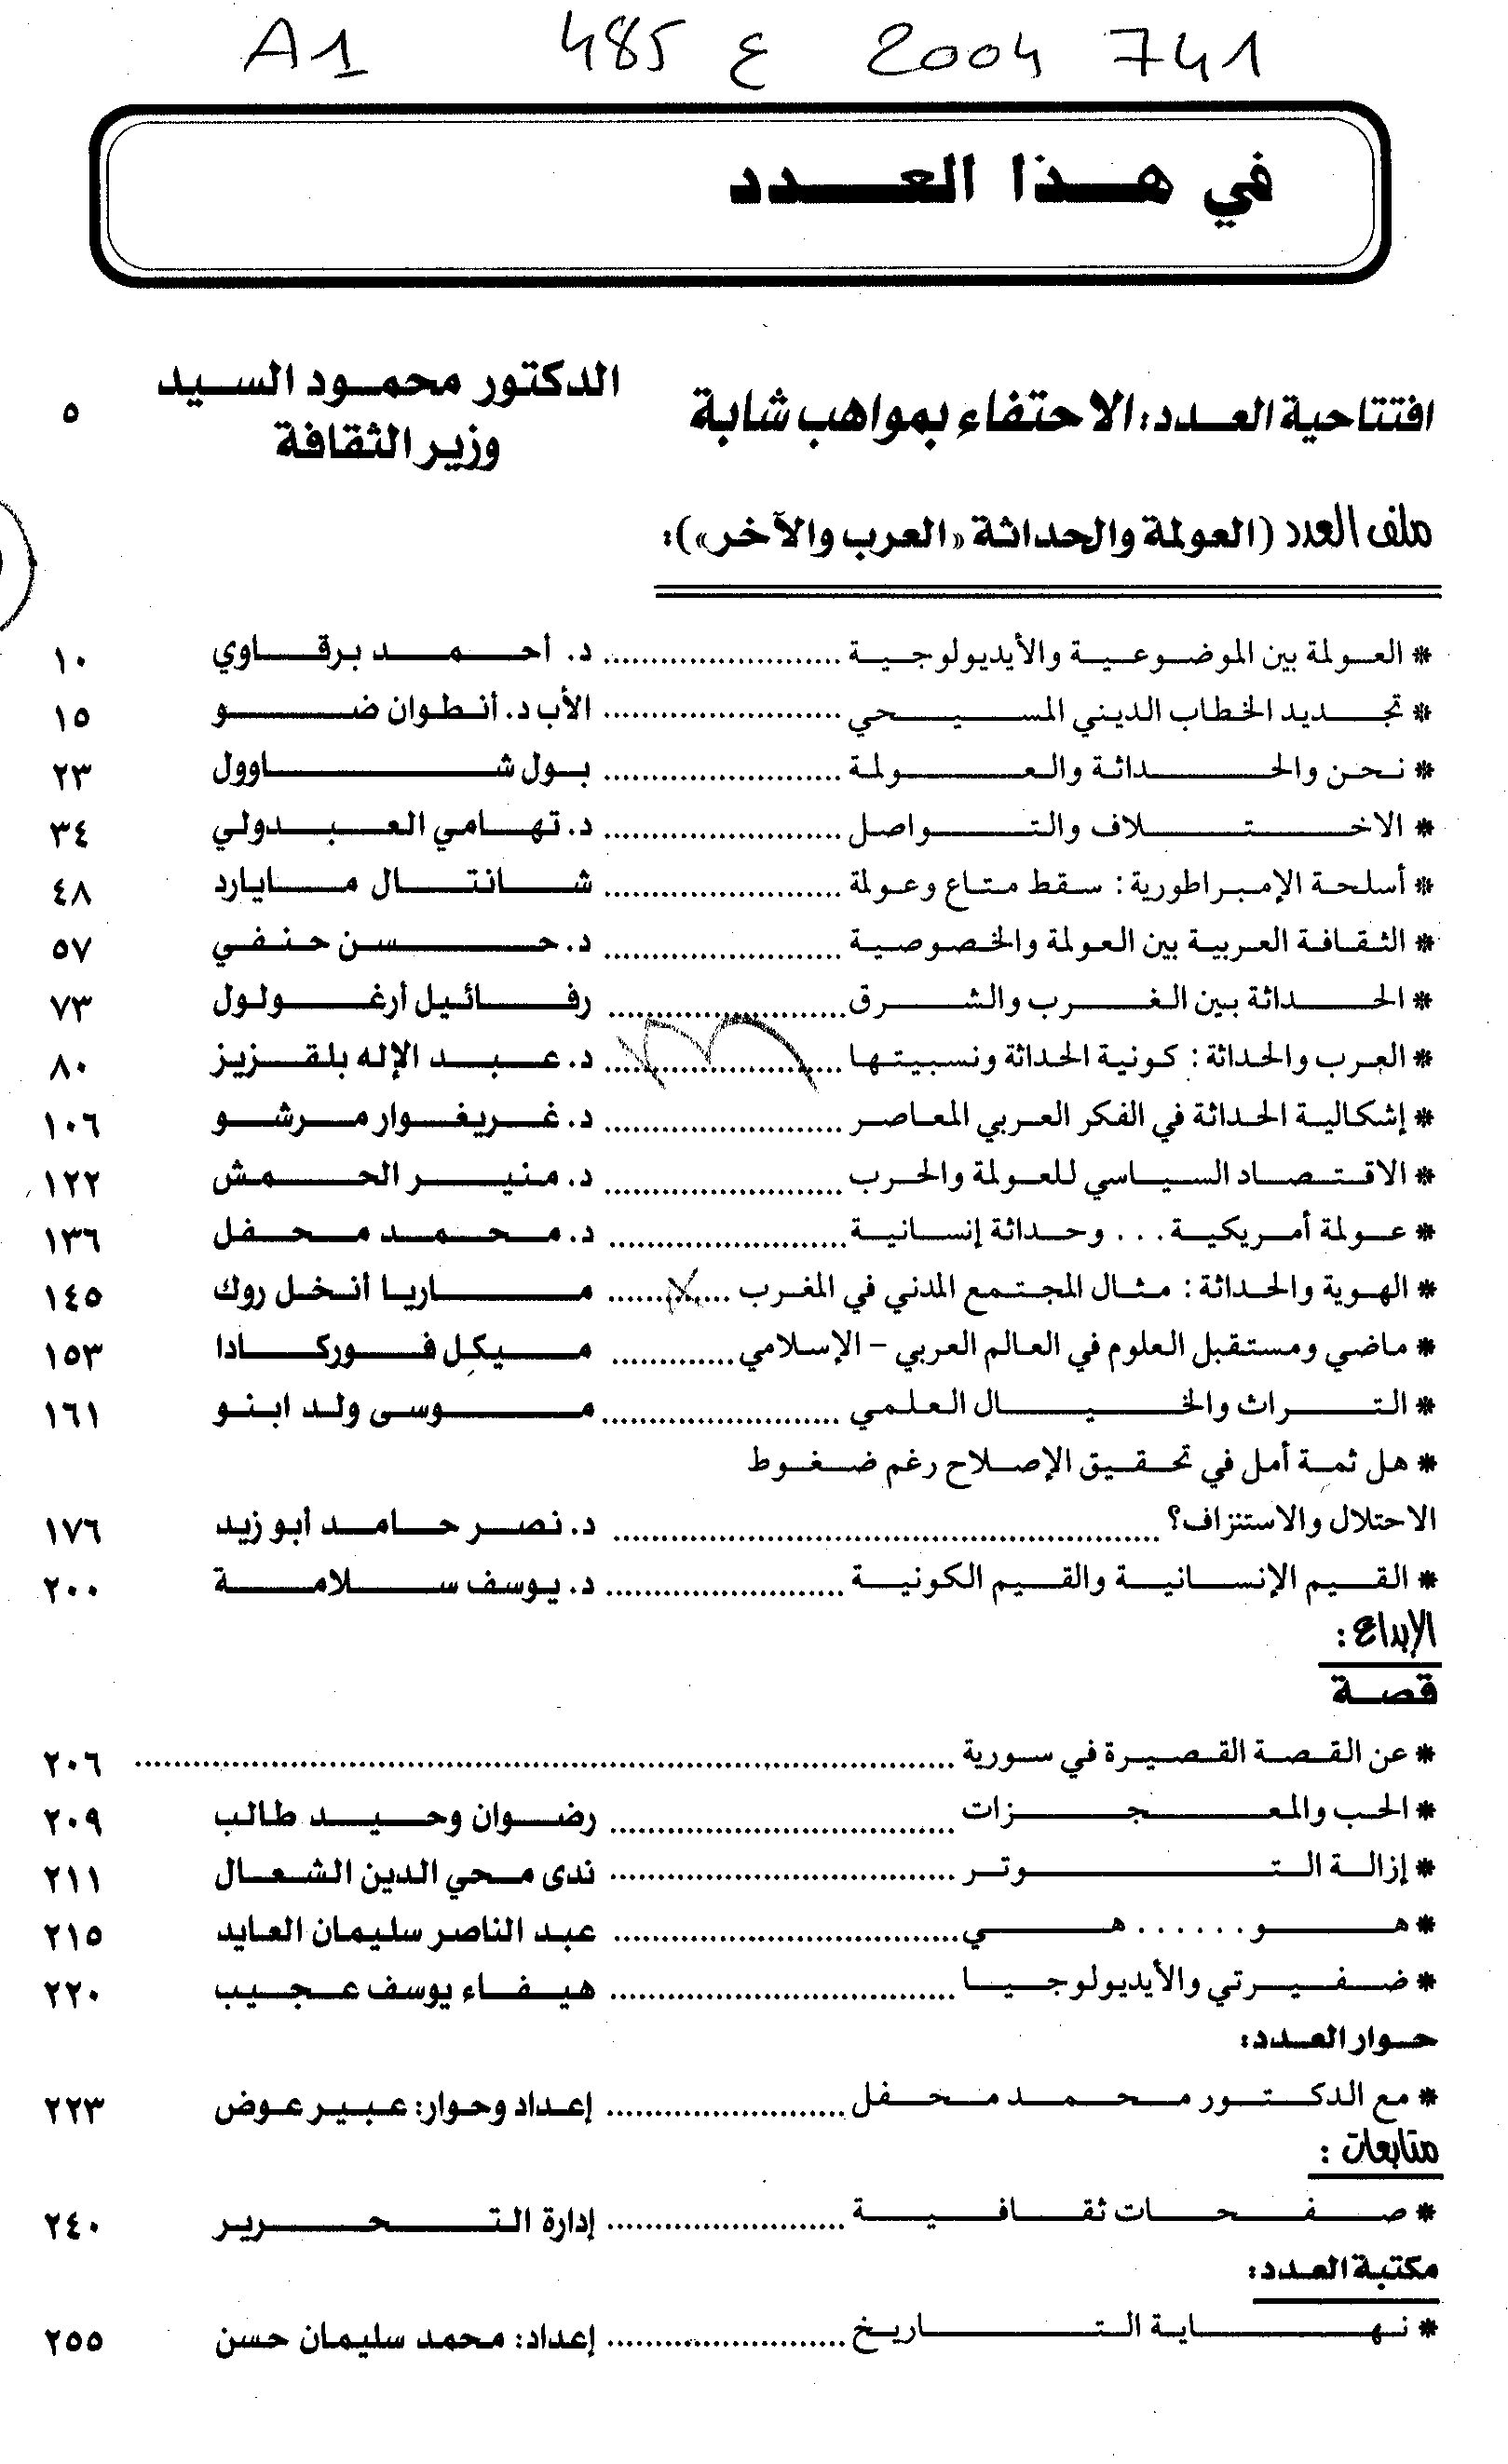 A1 485 ع 2004 741
في هذا العدد
افتتاحية العدد: الاحتفاء بمواهب شابة الدكتور محمود السيد ٥
وزير الثقافة
ملف العدد (العولمة والحداثة «العرب والآخر»):
* العولمة بين الموضوعية والأيديولوجية ........ د. أحمد برقاوي ١٠
* تجديد الخطاب الديني المسيحي ........ الأب د. أنطوان ضو ١٥
* نحن والحداثة والعولمة ........ بول شاوول ٢٣
* الاختلاف والتواصل ........ د. تهامي العبدولي ٣٤
* أسلحة الإمبراطورية: سقط متاع وعولمة ........ شانتال مايارد ٤٨
* الثقافة العربية بين العولمة والخصوصية ........ د. حسن حنفي ٥٧
* الحداثة بين الغرب والشرق ........ رفائيل أرغولول ٧٣
* العرب والحداثة: كونية الحداثة ونسبيتها ........ د. عبد الإله بلقزيز ٨٠
* إشكالية الحداثة في الفكر العربي المعاصر ........ د. غريغوار مرشو ١٠٦
* الاقتصاد السياسي للعولمة والحرب ........ د. منير الحمش ١٢٢
* عولمة أمريكية... وحداثة إنسانية ........ د. محمد محفل ١٣٦
* الهوية والحداثة: مثال المجتمع المدني في المغرب ........ ماريا أنخل روك ١٤٥
* ماضي ومستقبل العلوم في العالم العربي - الإسلامي ........ ميكل فوركادا ١٥٣
* التراث والخيال العلمي ........ موسى ولد ابنو ١٦١
* هل ثمة أمل في تحقيق الإصلاح رغم ضغوط
الاحتلال والاستنزاف؟ ........ د. نصر حامد أبو زيد ١٧٦
* القيم الإنسانية والقيم الكونية ........ د. يوسف سلامة ٢٠٠
الإبداع:
قصة
* عن القصة القصيرة في سورية ........ ٢٠٦
* الحب والمعجزات ........ رضوان وحيد طالب ٢٠٩
* إزالة التوتر ........ ندى محي الدين الشعال ٢١١
* هو...... هي ........ عبد الناصر سليمان العايد ٢١٥
* ضفيرتي والأيديولوجيا ........ هيفاء يوسف عجيب ٢٢٠
حوار العدد:
* مع الدكتور محمد محفل ........ إعداد وحوار: عبير عوض ٢٢٣
متابعات:
* صفحات ثقافية ........ إدارة التحرير ٢٤٠
مكتبة العدد:
* نهاية التاريخ ........ إعداد: محمد سليمان حسن ٢٥٥